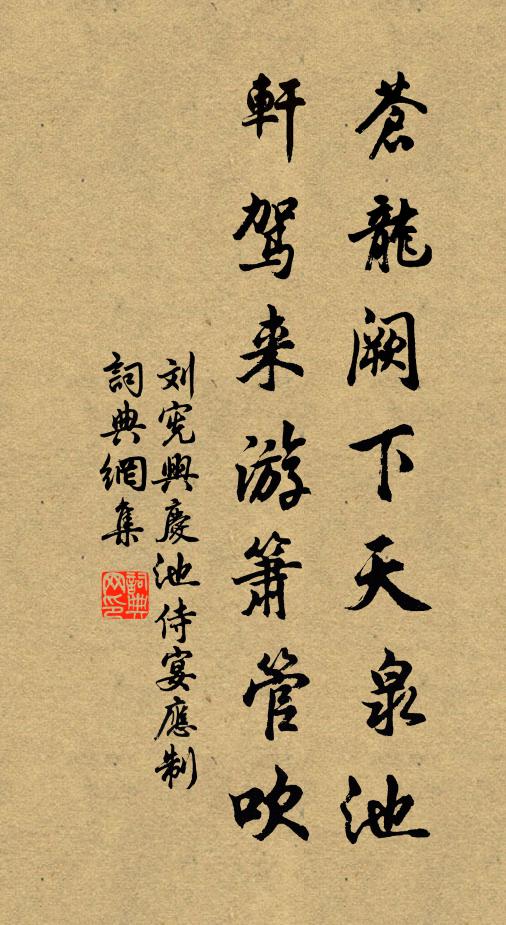 蒼龍阙下天泉池
軒駕来游簫管吹
刘宪興慶池侍宴應制
詞典網集
詞典网印